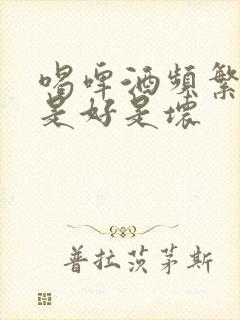 喝啤酒频繁
是好是坏
普拉茨茅斯